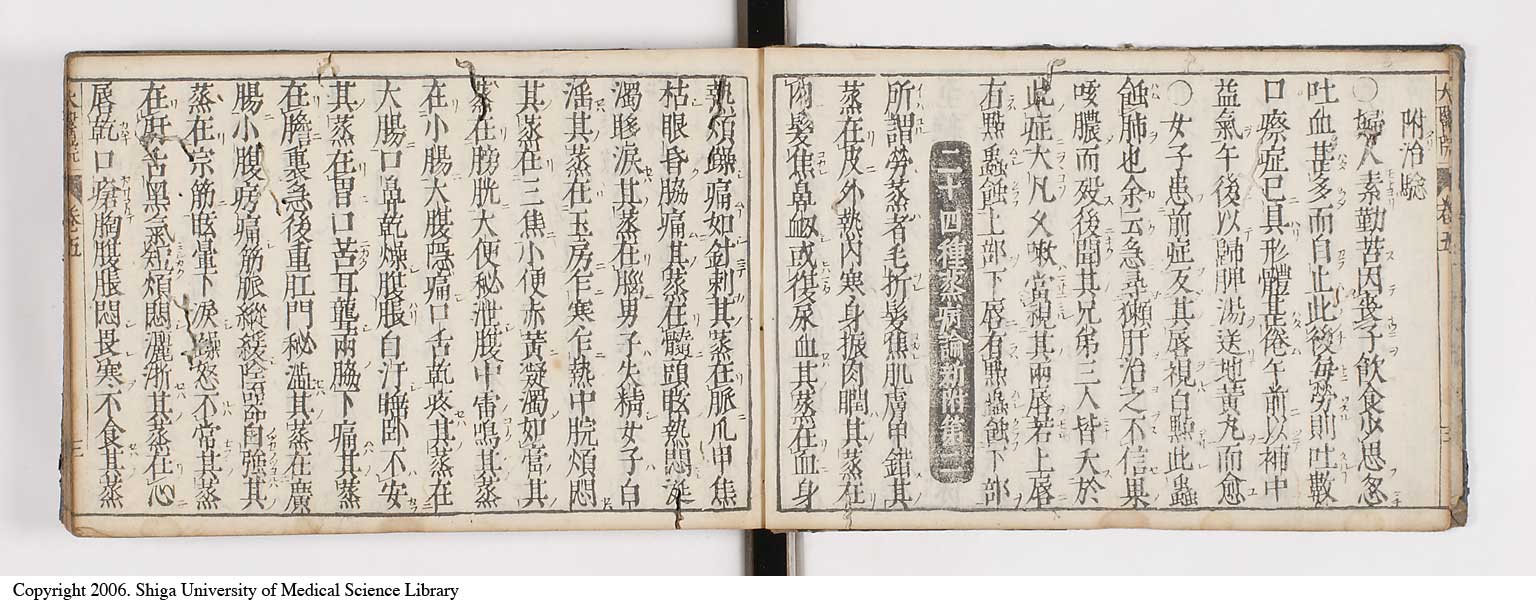 附治驗
○婦人素勤苦因喪子飲食少思忽
吐血甚多而自止此後每勞則吐數
口瘵症已具形體甚倦午前以補中
益氣午後以歸脾湯送地黃丸而愈
○女子患前症反其唇視白點此蟲
蝕肺也余云急尋獺肝治之不信果
咳膿而歿後聞其兄弟三人皆夭於
此症大凡久嗽當視其兩唇若上唇
有點蟲蝕上部下唇有點蟲蝕下部
二十四種蒸病論新附第二
所謂勞蒸者毛折髮焦肌膚甲錯其
蒸在皮外熱內寒身振肉瞤其蒸在
肉髮焦鼻衄或復尿血其蒸在血身
熱煩躁痛如針刺其蒸在脈爪甲焦
枯眼昏脇痛其蒸在髓頭眩熱悶涎
濁眵淚其蒸在腦男子失精女子白
淫其蒸在玉房乍寒乍熱中脘煩悶
其蒸在三焦小便赤黃凝濁如膏其
蒸在膀胱大便秘泄腹中雷鳴其蒸
在小腸大腹隱痛口舌乾疼其蒸在
大腸口鼻乾燥腹脹自汗睡臥不安
其蒸在胃口苦耳聾兩脇下痛其蒸
在膽裏急後重肛門秘澁其蒸在廣
腸小腹疠痛筋脈縱緩陰器自強其
蒸在宗筋眩暈下淚躁怒不常其蒸
在肝舌黑氣短煩悶灑淅其蒸在心
唇乾口瘡胸腹脹悶畏寒不食其蒸
卷五
三